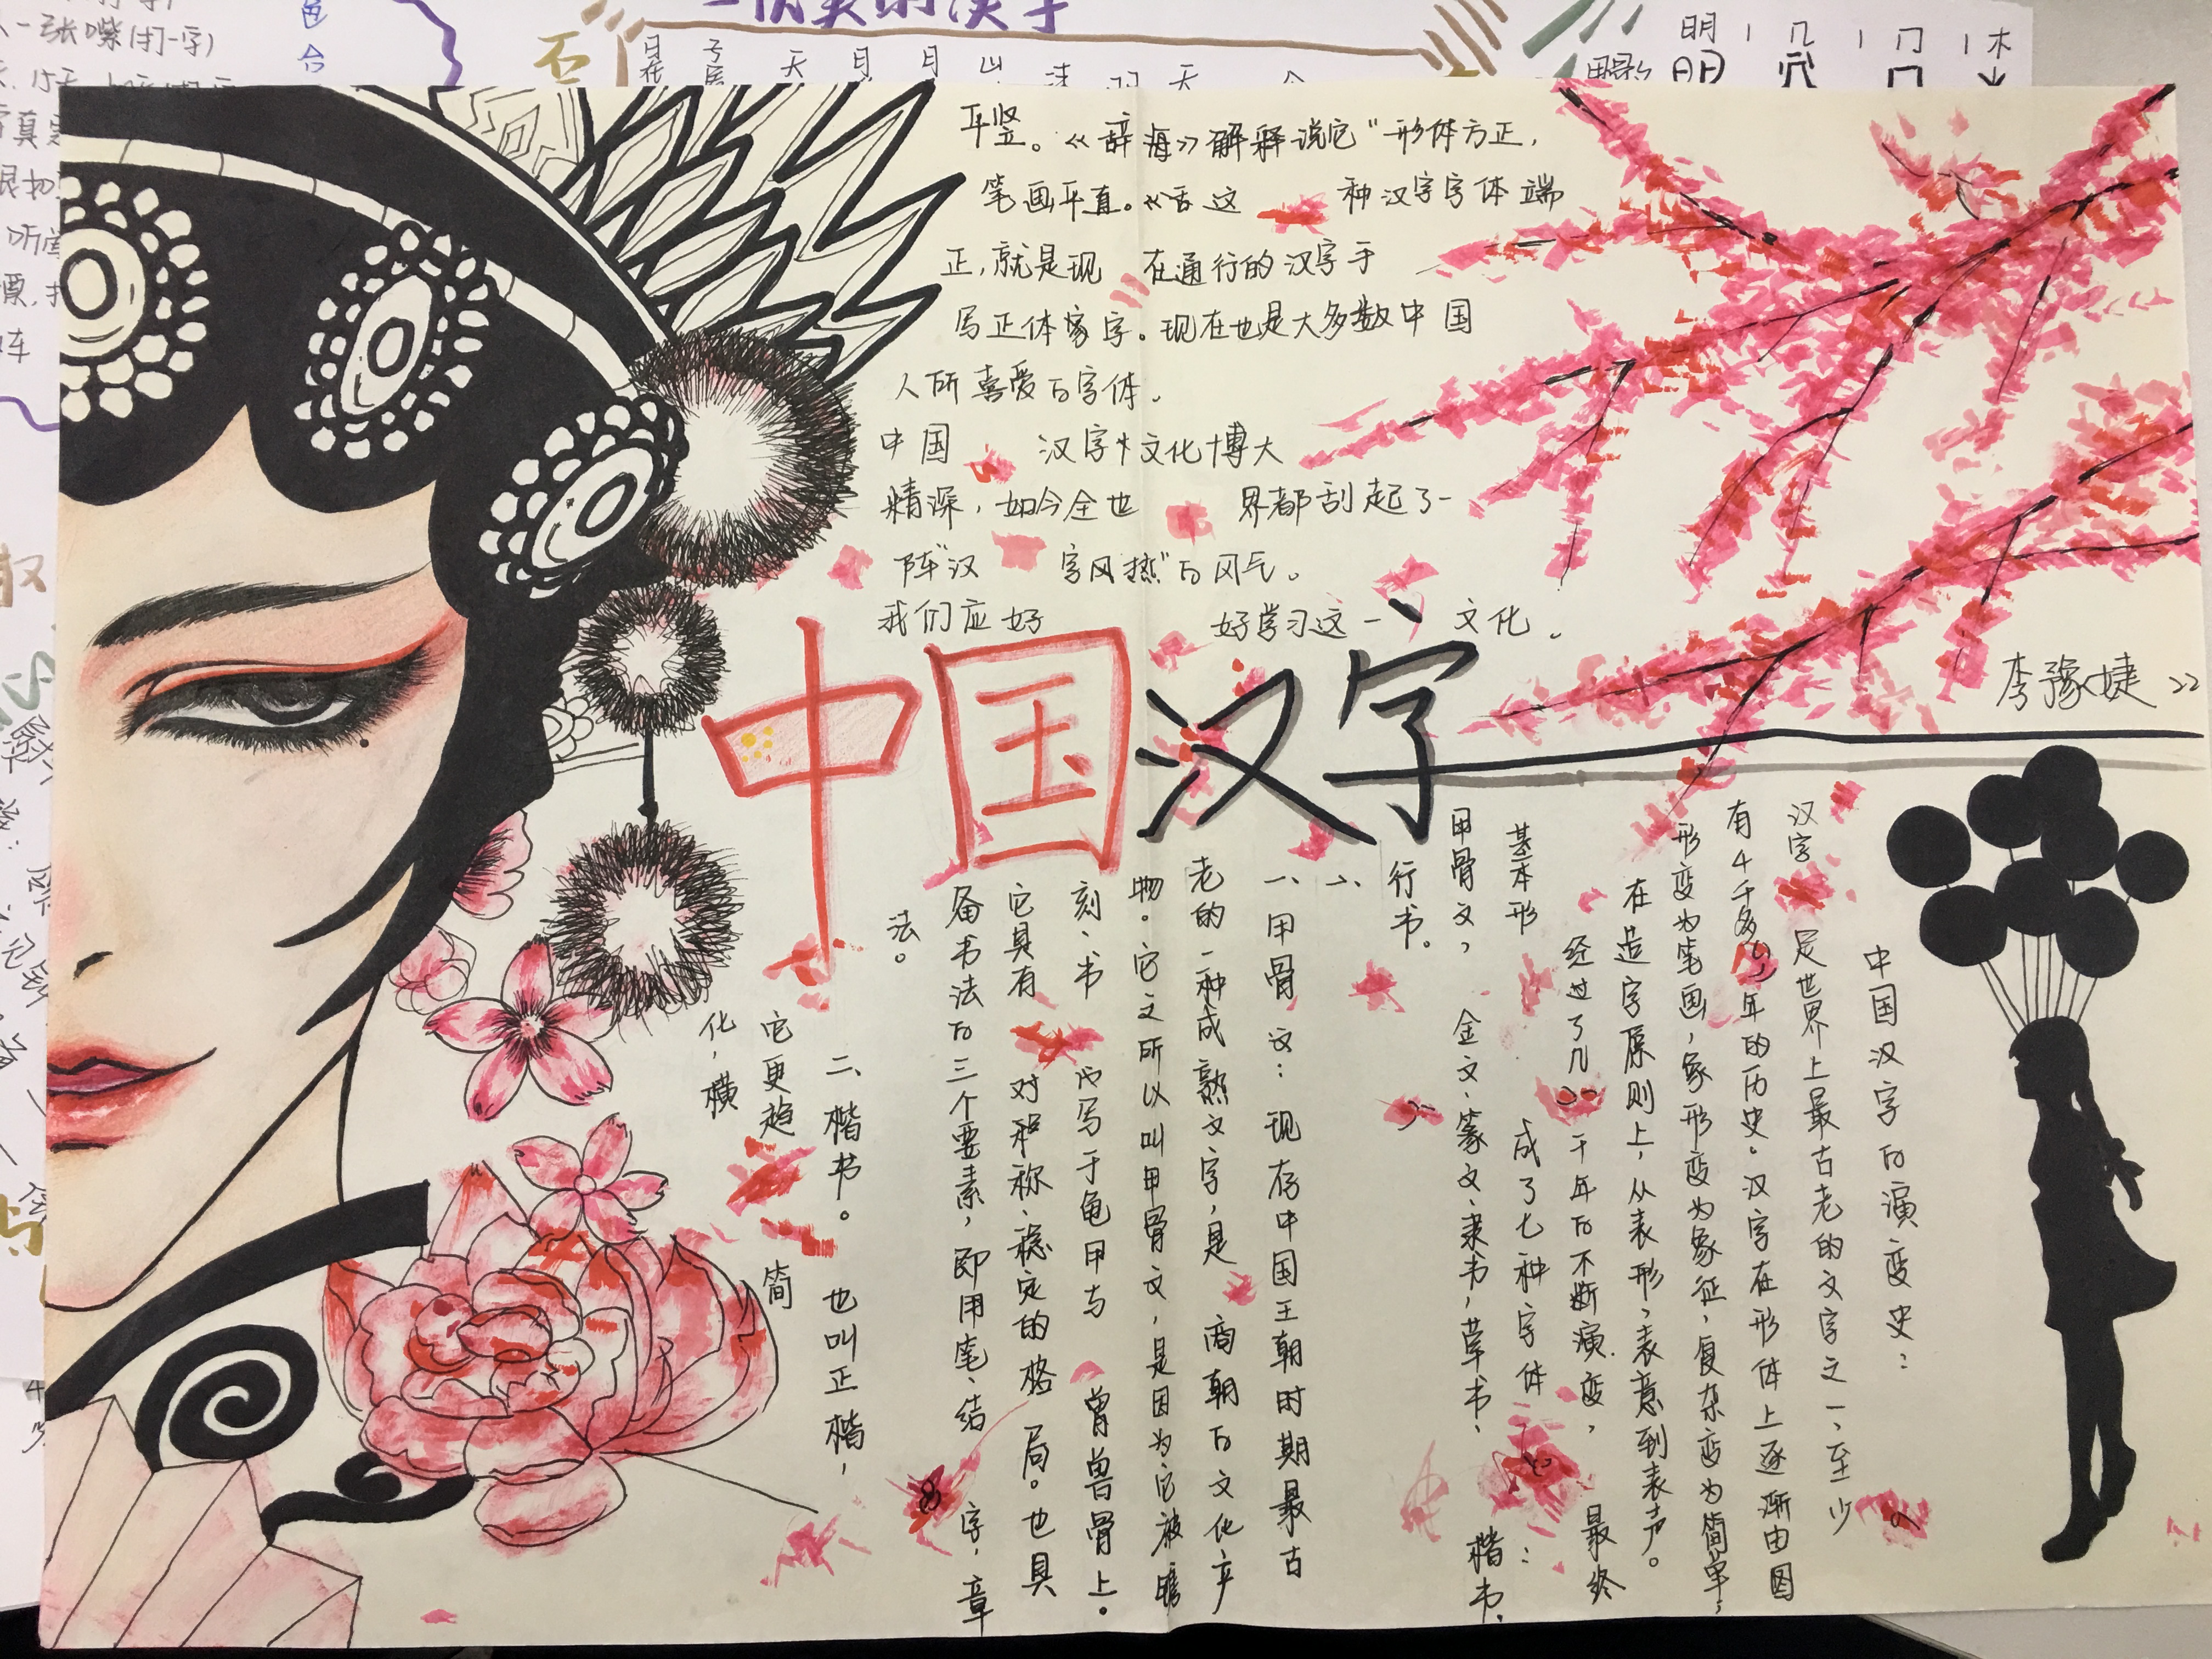 中国汉字
李豫婕
中国汉字的演变史：
汉字是世界上最古老的文字之一，至少
有4千多年的历史。汉字在形体上逐渐由图
形变为笔画，象形变为象征，复杂变为简单；
在造字原则上，从表形、表意到表声。
经过了几千年的不断演变，最终
基本形成了七种字体：
甲骨文，金文、篆文、隶书，草书、楷书、
行书。
一、甲骨文：现存中国王朝时期最古
老的一种成熟文字，是商朝的文化产
物。它之所以叫甲骨文，是因为它被
刻、书写于龟甲与兽骨上。
它具有对称、稳定的格局。也具
备书法的三个要素，即用笔、结字，章
法。
二、楷书。也叫正楷，
它更趋简
化，横
平竖。《辞海》解释说它“形体方正，
笔画平直。《这种汉字字体端
正，就是现在通行的汉字手
写正体字。现在也是大多数中国
人所喜爱的字体．
中国汉字文化博大
精深，如今全世界都刮起了一
阵“汉字风热”的风气。
我们应好好学习这一文化．
一张嘴(打一字)
明
几
门
木